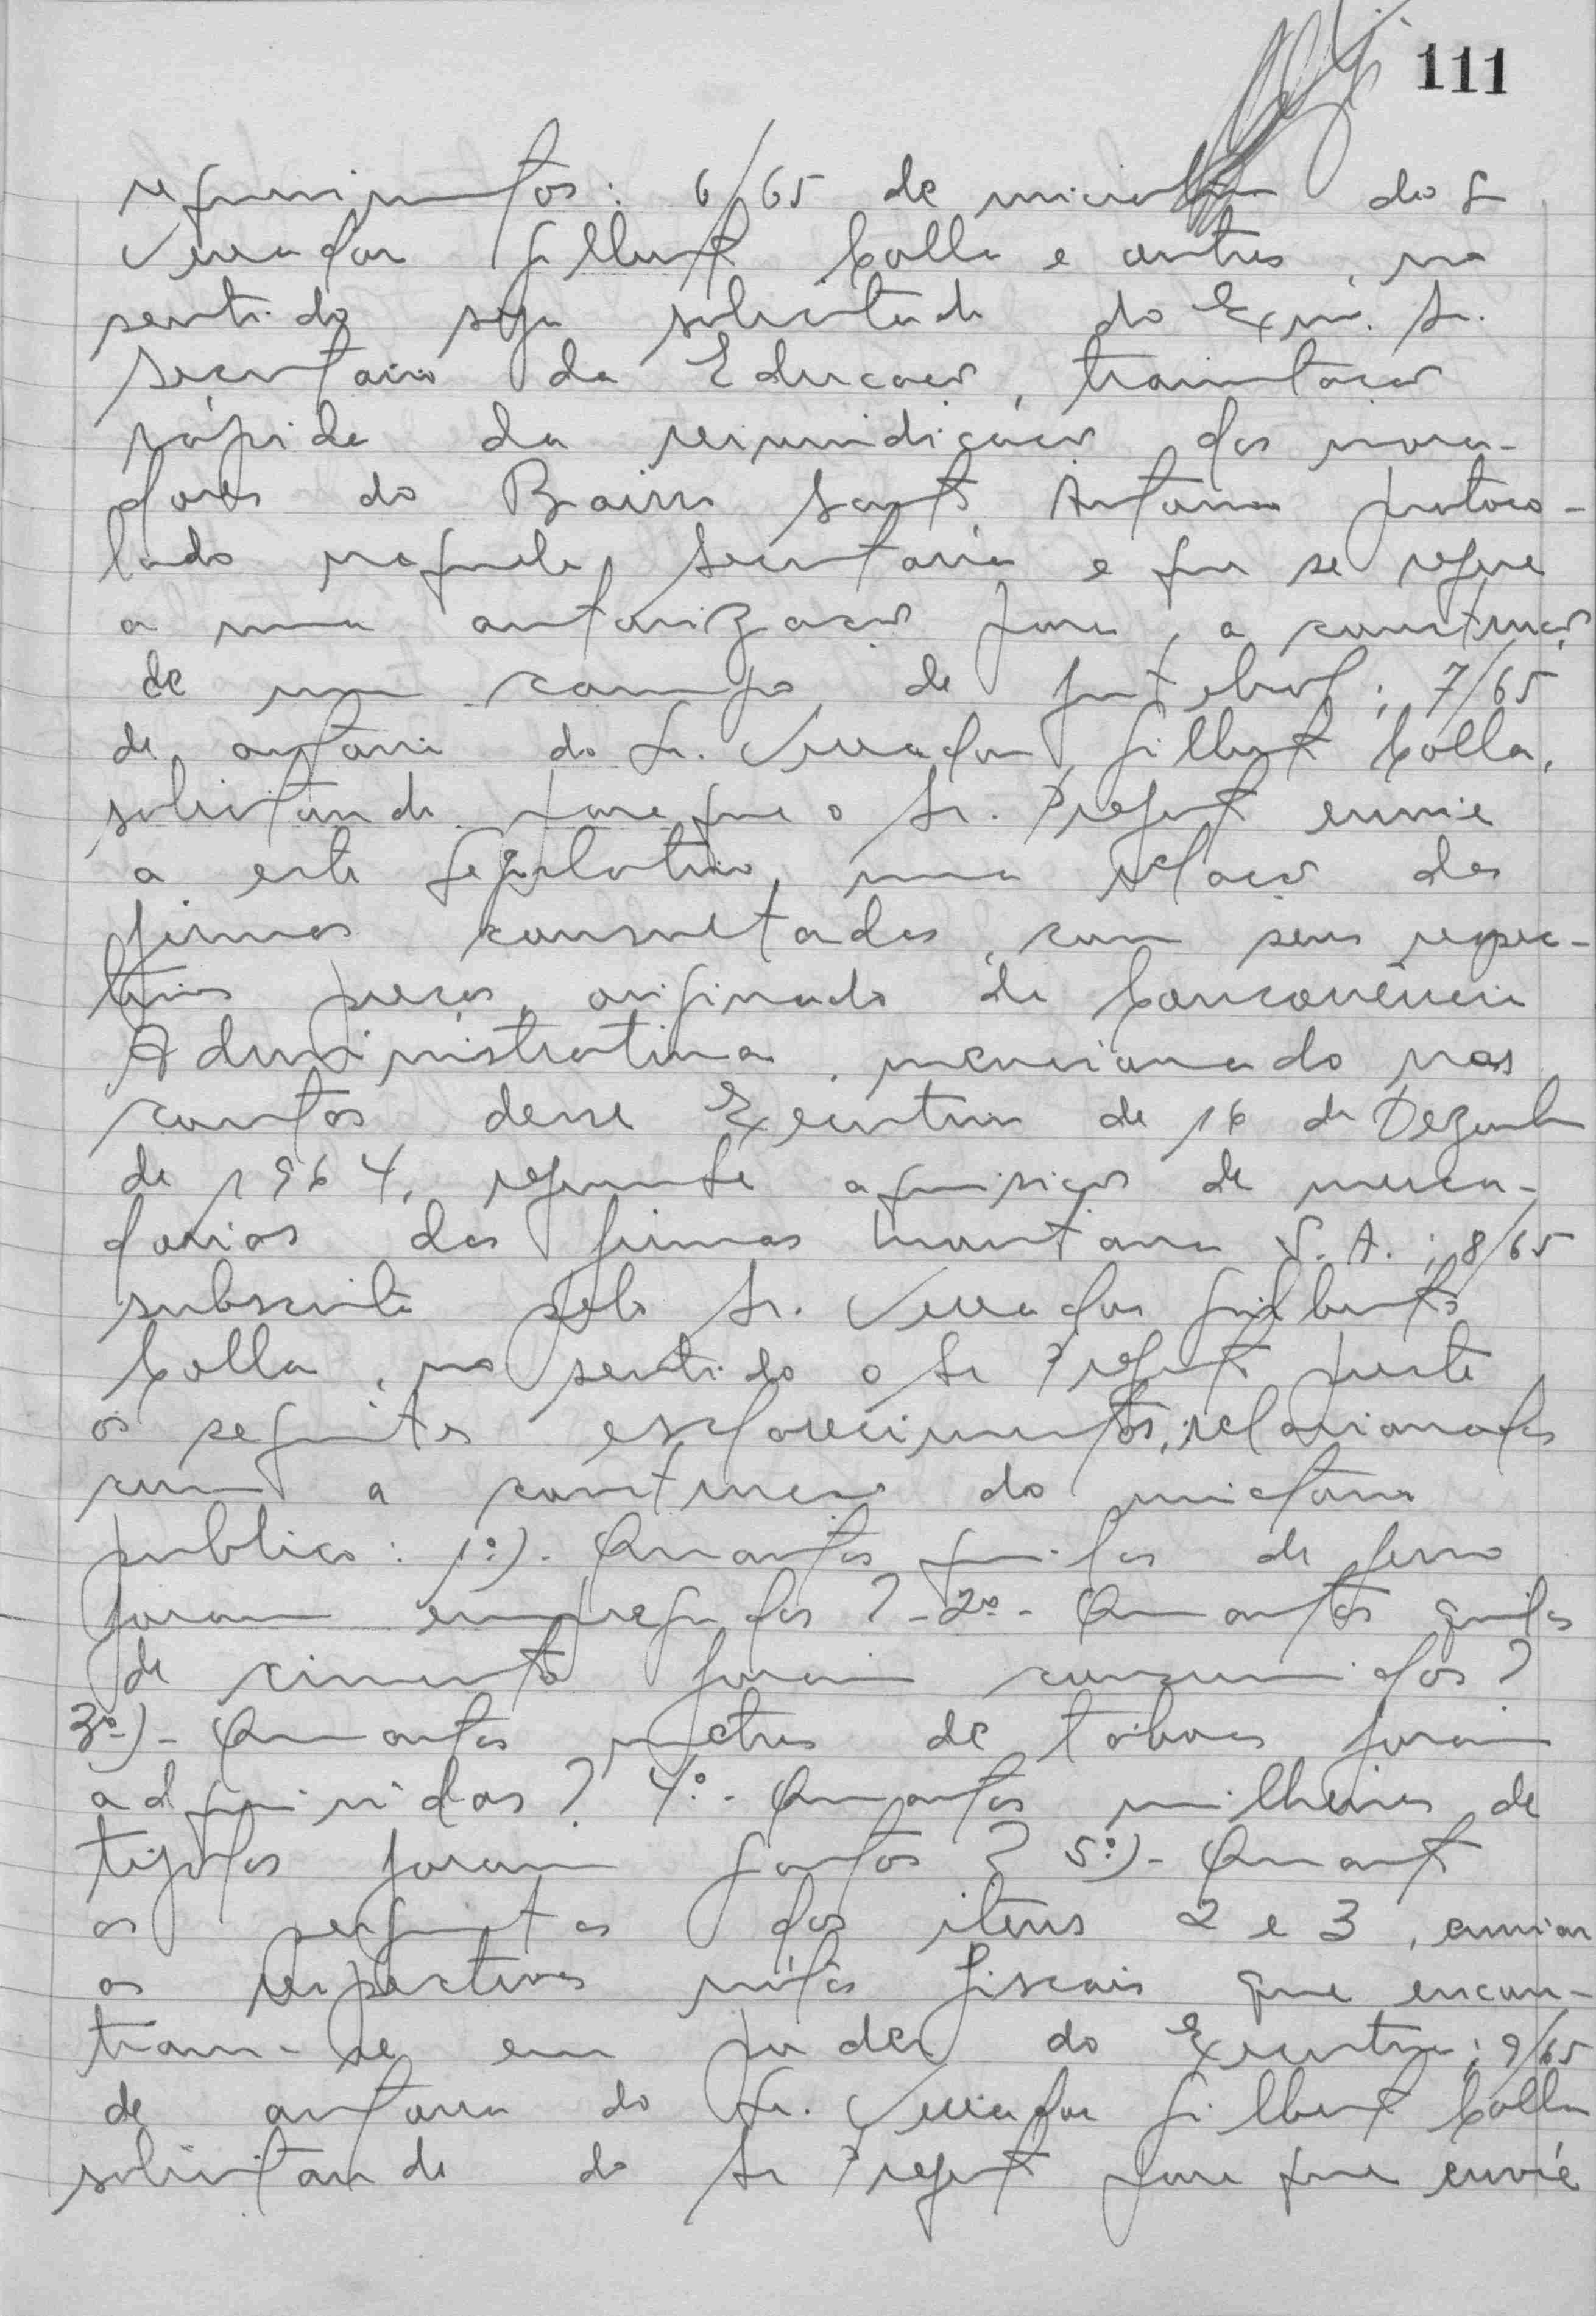 111
requerimentos: 6/65 de iniciativa do S
Vereador Gilberto Colla e outros, no
sentido seja solicitado do Exmo. Sr.
Secretario da Educação, tramitação
rápida da reivindicação dos mora-
dores do Bairro Santo Antonio protoco-
lado naquela Secretaria e que se refere
a uma autorização para a construção
de um campo de futebol; 7/65
de autoria do Sr. Vereador Gilberto Colla,
solicitando para que o Sr. Prefeito envie
a este Legislativo, uma relação das
firmas consultadas, com seus respec-
tivos preços, originado da Concorrência
Administrativa, mencionado nas
contas desse Executivo de 16 de Dezembro
de 1964, referente aquisição de merca-
dorias das firmas S. A.; 8/65
subscrito pelo Sr. Vereador Gilberto
Colla, no sentido o Sr Prefeito preste
os seguintes esclarecimentos, relacionados
com a construção do mictorio
publico: 1º)- Quantos quilos de ferro
foram empregados? - 2º- Quantos quilos
de cimento foram consumidos?
3º-)- Quantos metros de taboas foram
adquiridas? 4º- Quantos milheiros de
tijolos foram gastos? 5º)- Quanto
as perguntas dos itens 2 e 3, enviar
as respectivas notas fiscais que encon-
tram-se em poder do Executivo; 9/65
de autoria do Sr. Vereador Gilberto Colla
solicitando do Sr Prefeito para que envie